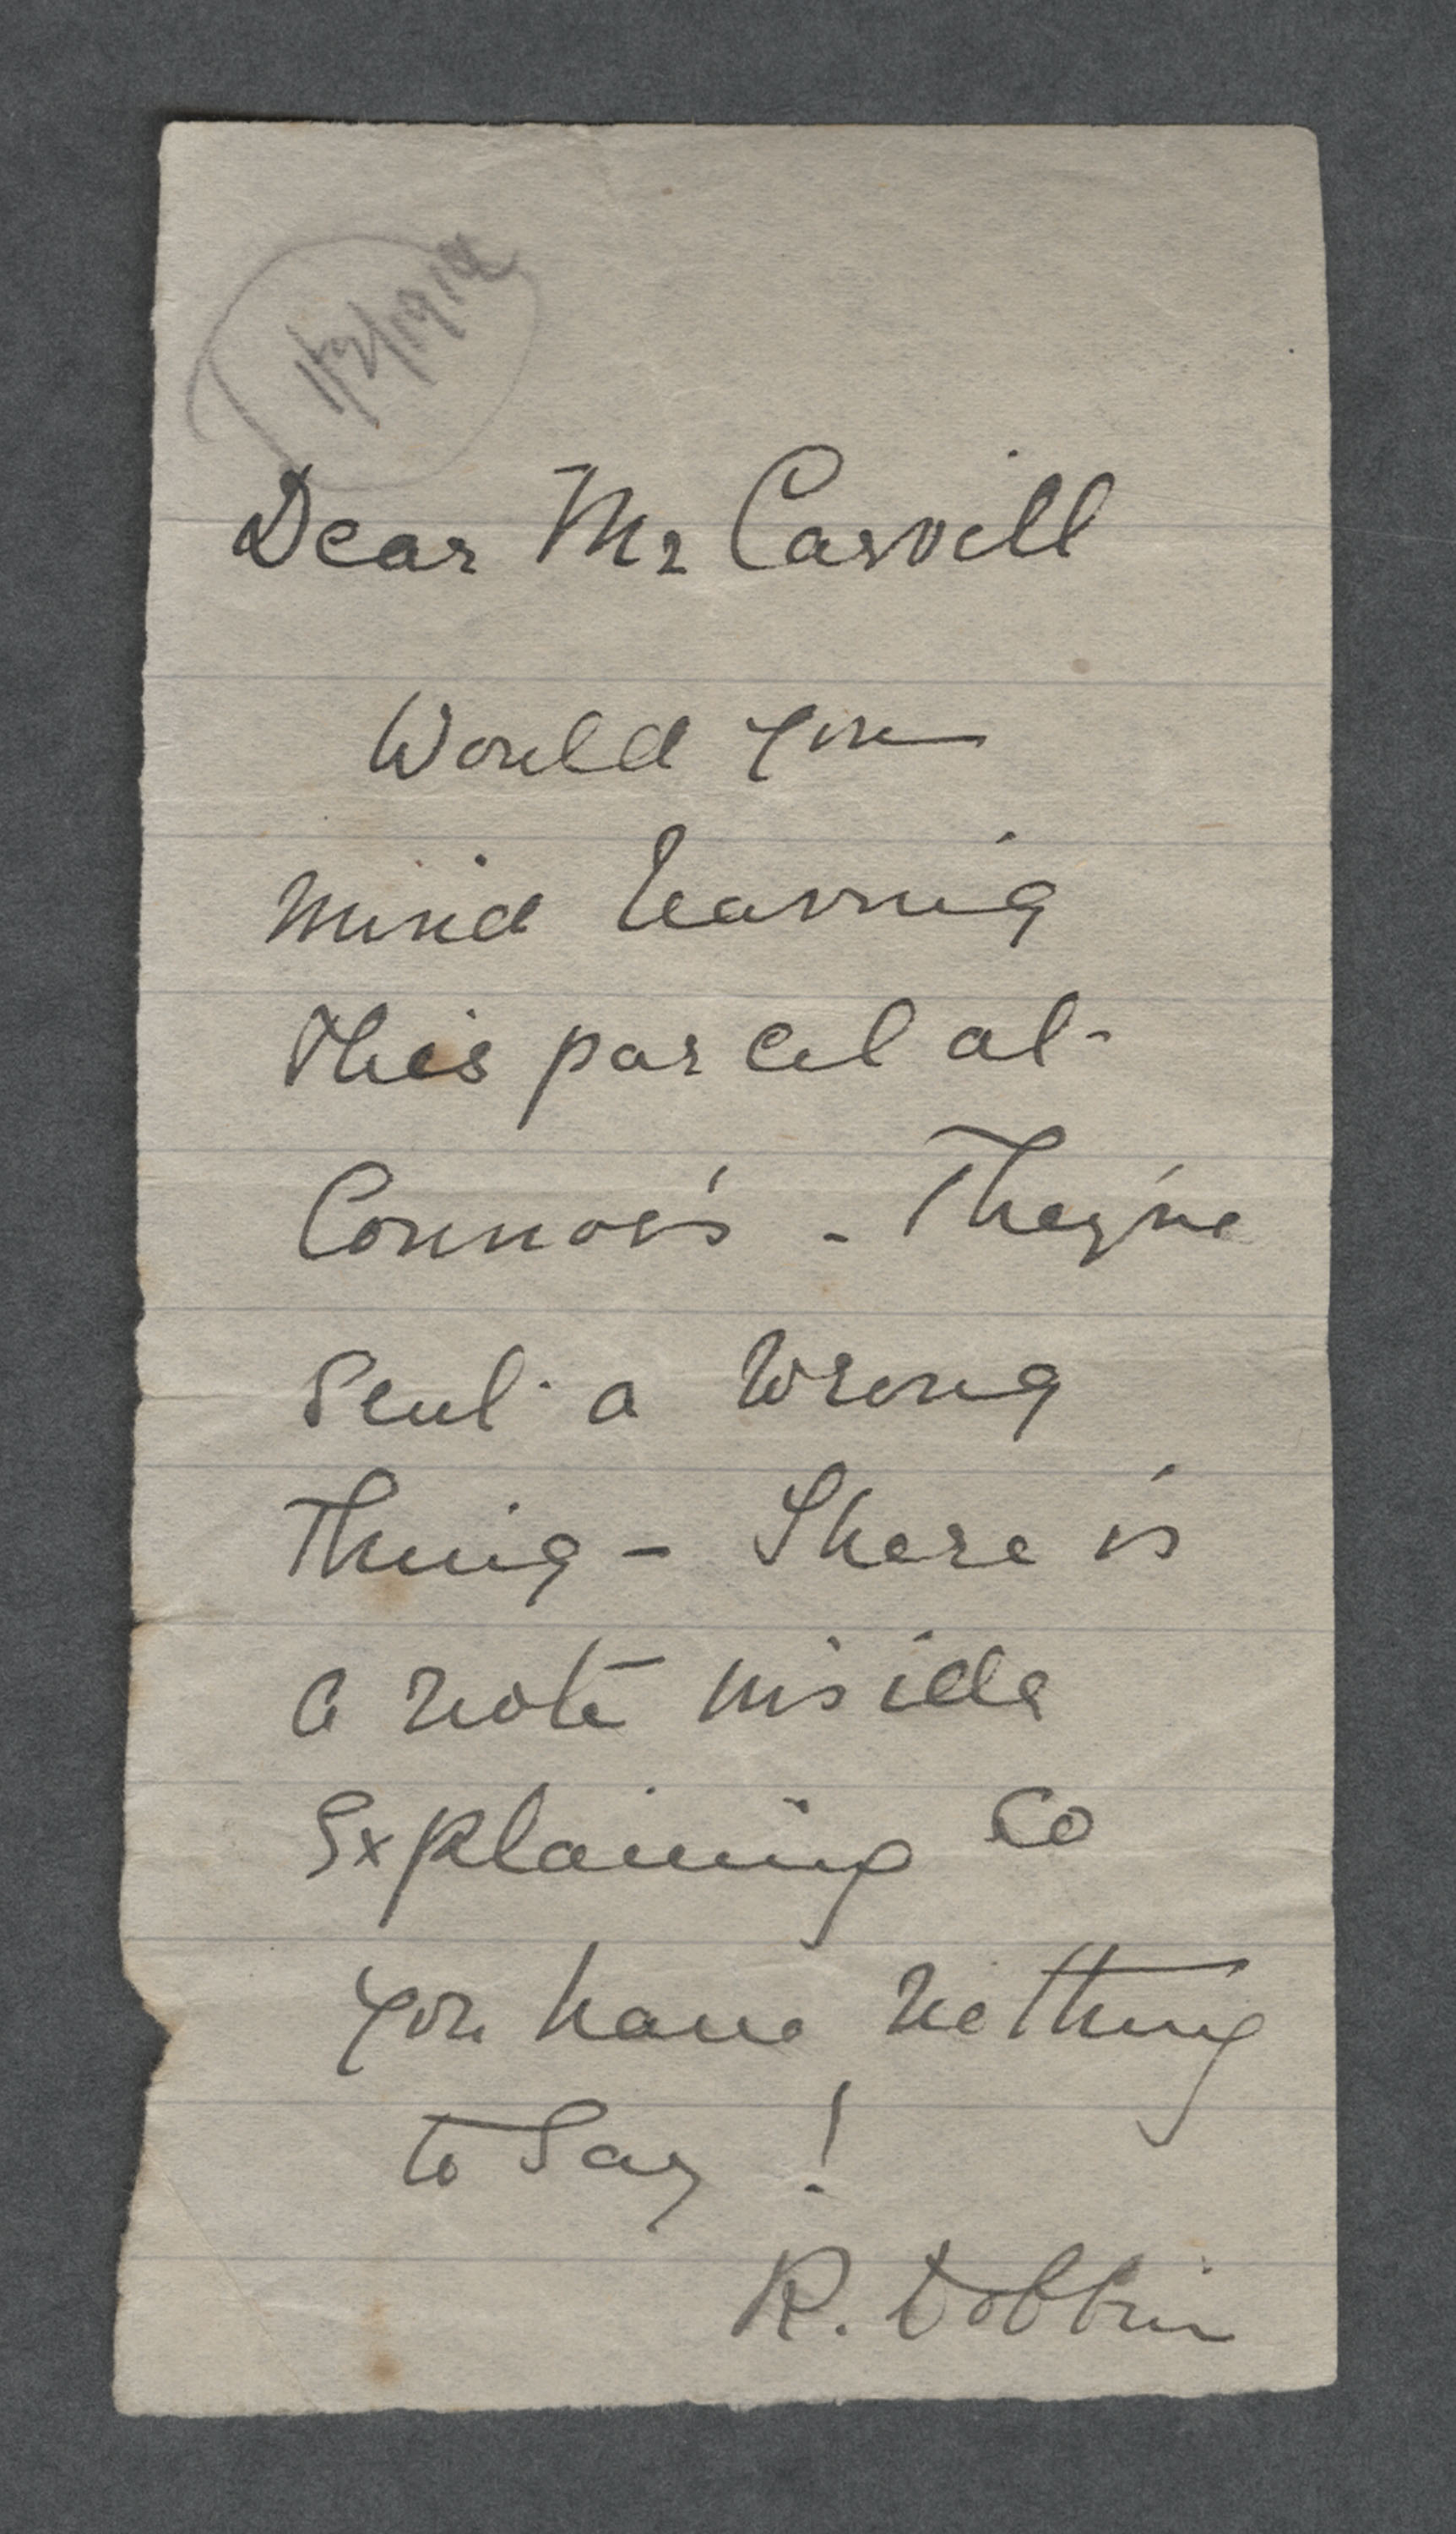 Dear Mr Carvill
Would you
mind leaving
this parcel at
Connor's - They've
sent a wrong
thing - There is
a note inside
Explaining so
you have nothing
to say!
R. Dobbin